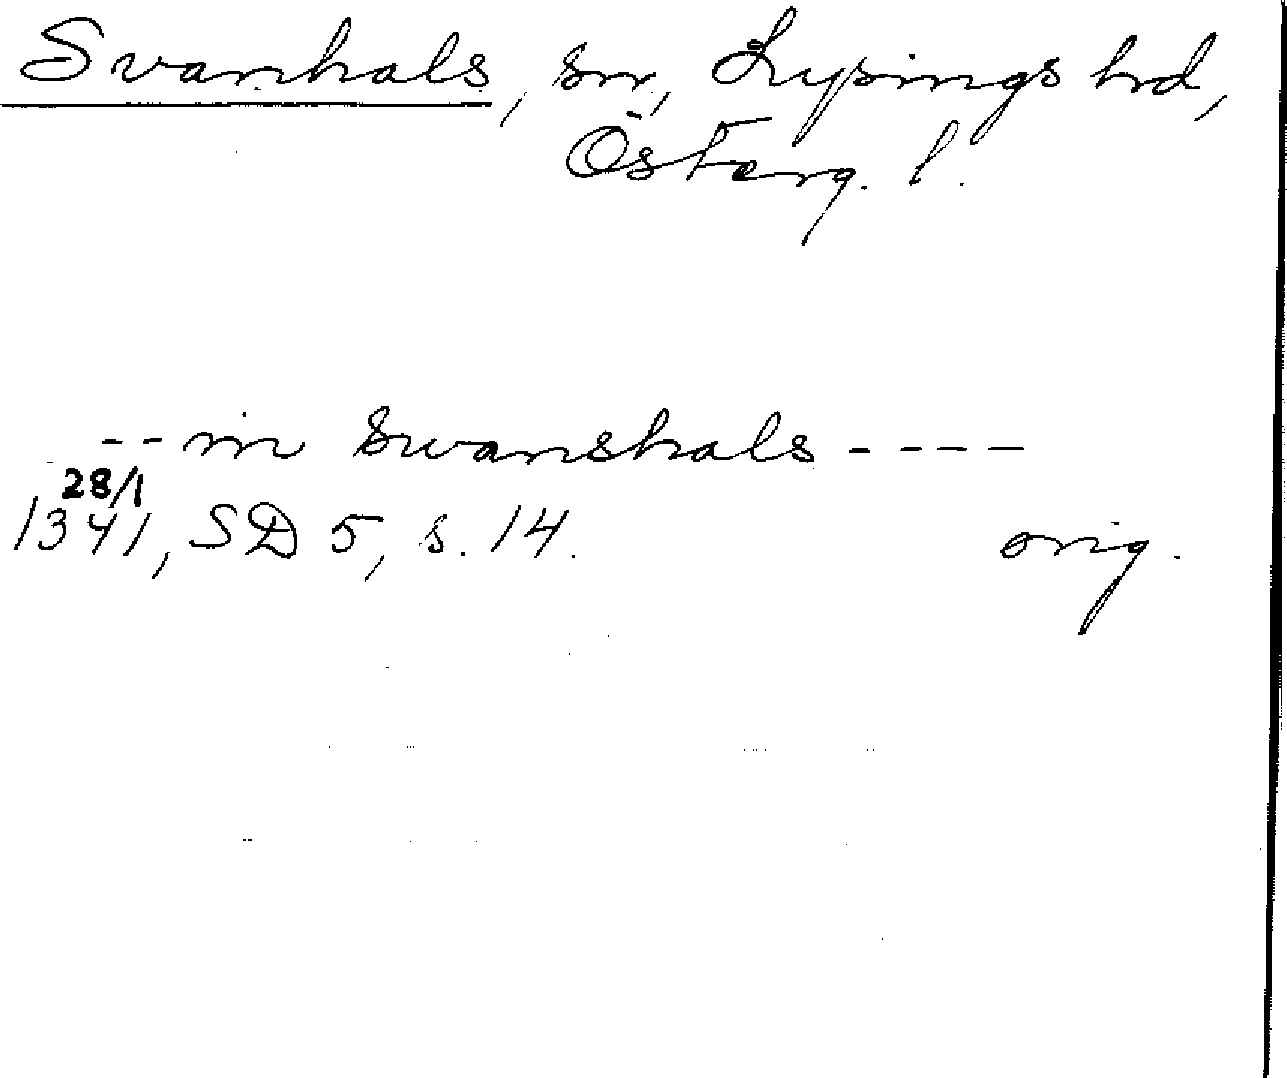 Svanhals, sn, Lysings hd,
Österg. l.
-- in Swanshals ----
28/1
1341, SD 5, s. 14. orig.